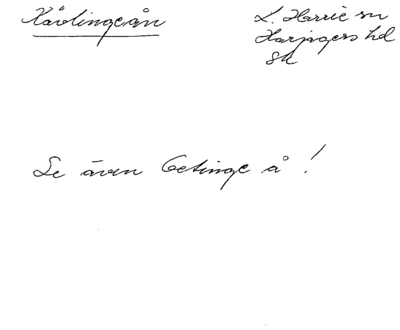 Kävlingeån
L. Harrie sn
Harjagers hd
Sk
Se även Getinge å!